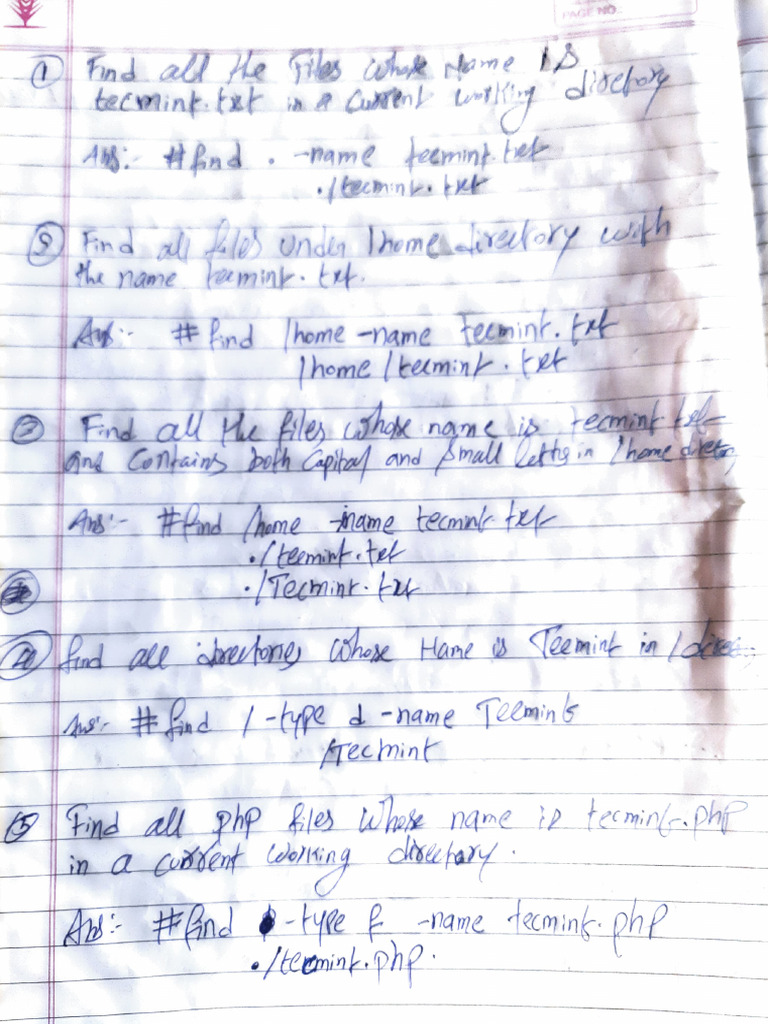 PAGE NO.
① Find all the Files whose Name is
tecmint.txt in a current working directory
Ans:- #find . -name tecmint.txt
./tecmint.txt
② Find all files under /home directory with
the name tecmint.txt.
Ans:- #find /home -name tecmint.txt
/home/tecmint.txt
③ Find all the files whose name is tecmint.txt
and contains both Capital and small letters in /home
Ans:- #find /home -iname tecmint.txt
./tecmint.txt
./Tecmint.txt
④ find all directories whose Name is Tecmint in /
Ans:- #find / -type d -name Tecmint
/Tecmint
⑤ Find all php files whose name is tecmint.php
in a current working directory.
Ans:- #find . -type f -name tecmint.php
./tecmint.php.